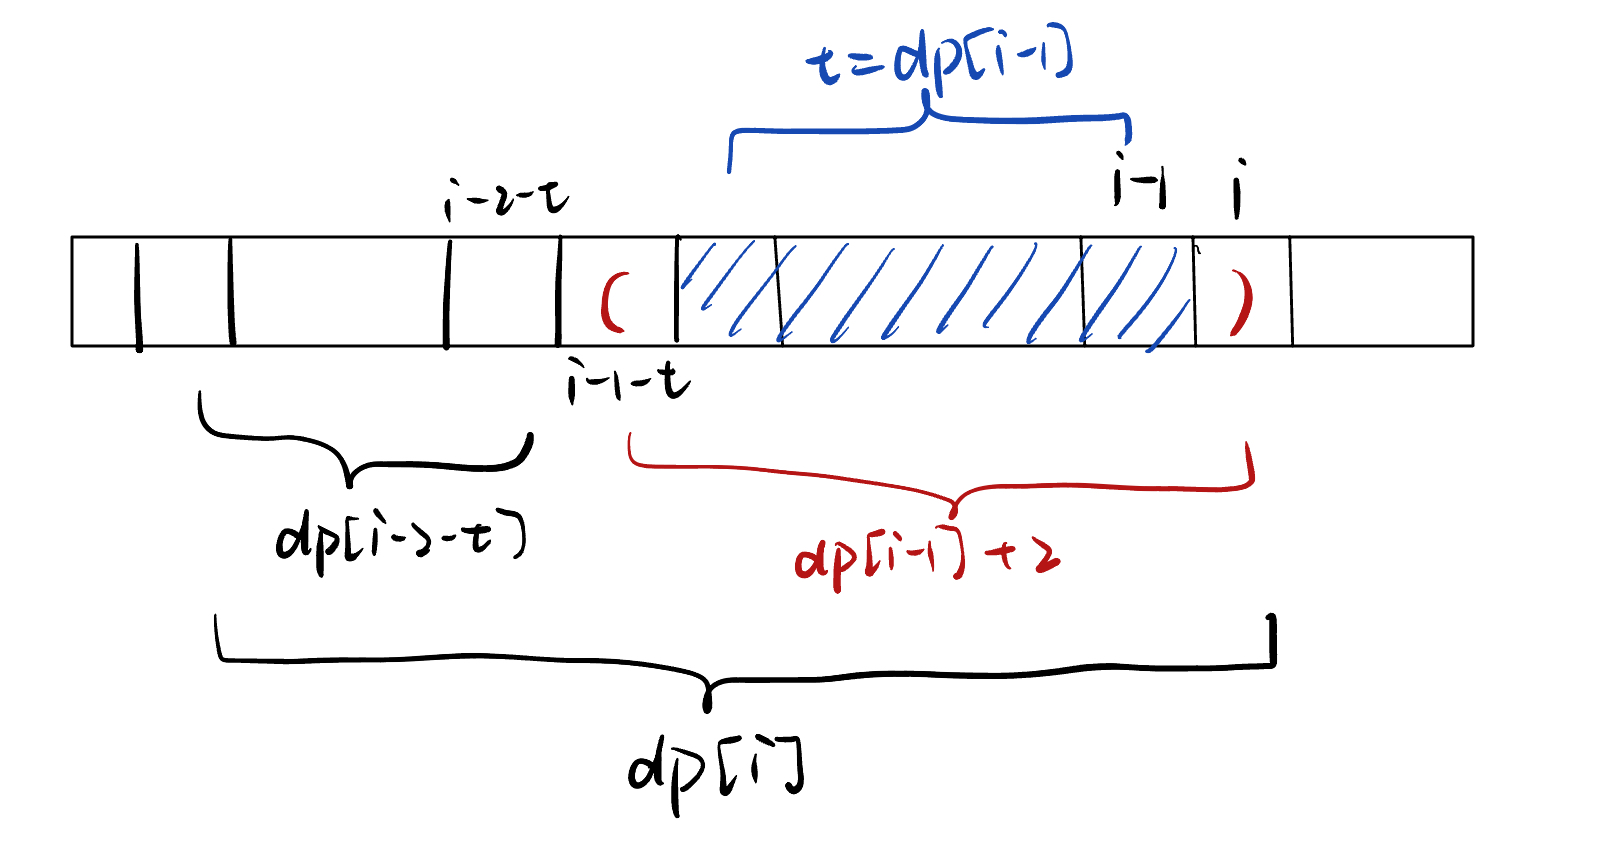 t=dp[i-1]
i-2-t
i-1
i
(
)
i-1-t
dp[i-2-t]
dp[i-1]+2
dp[i]